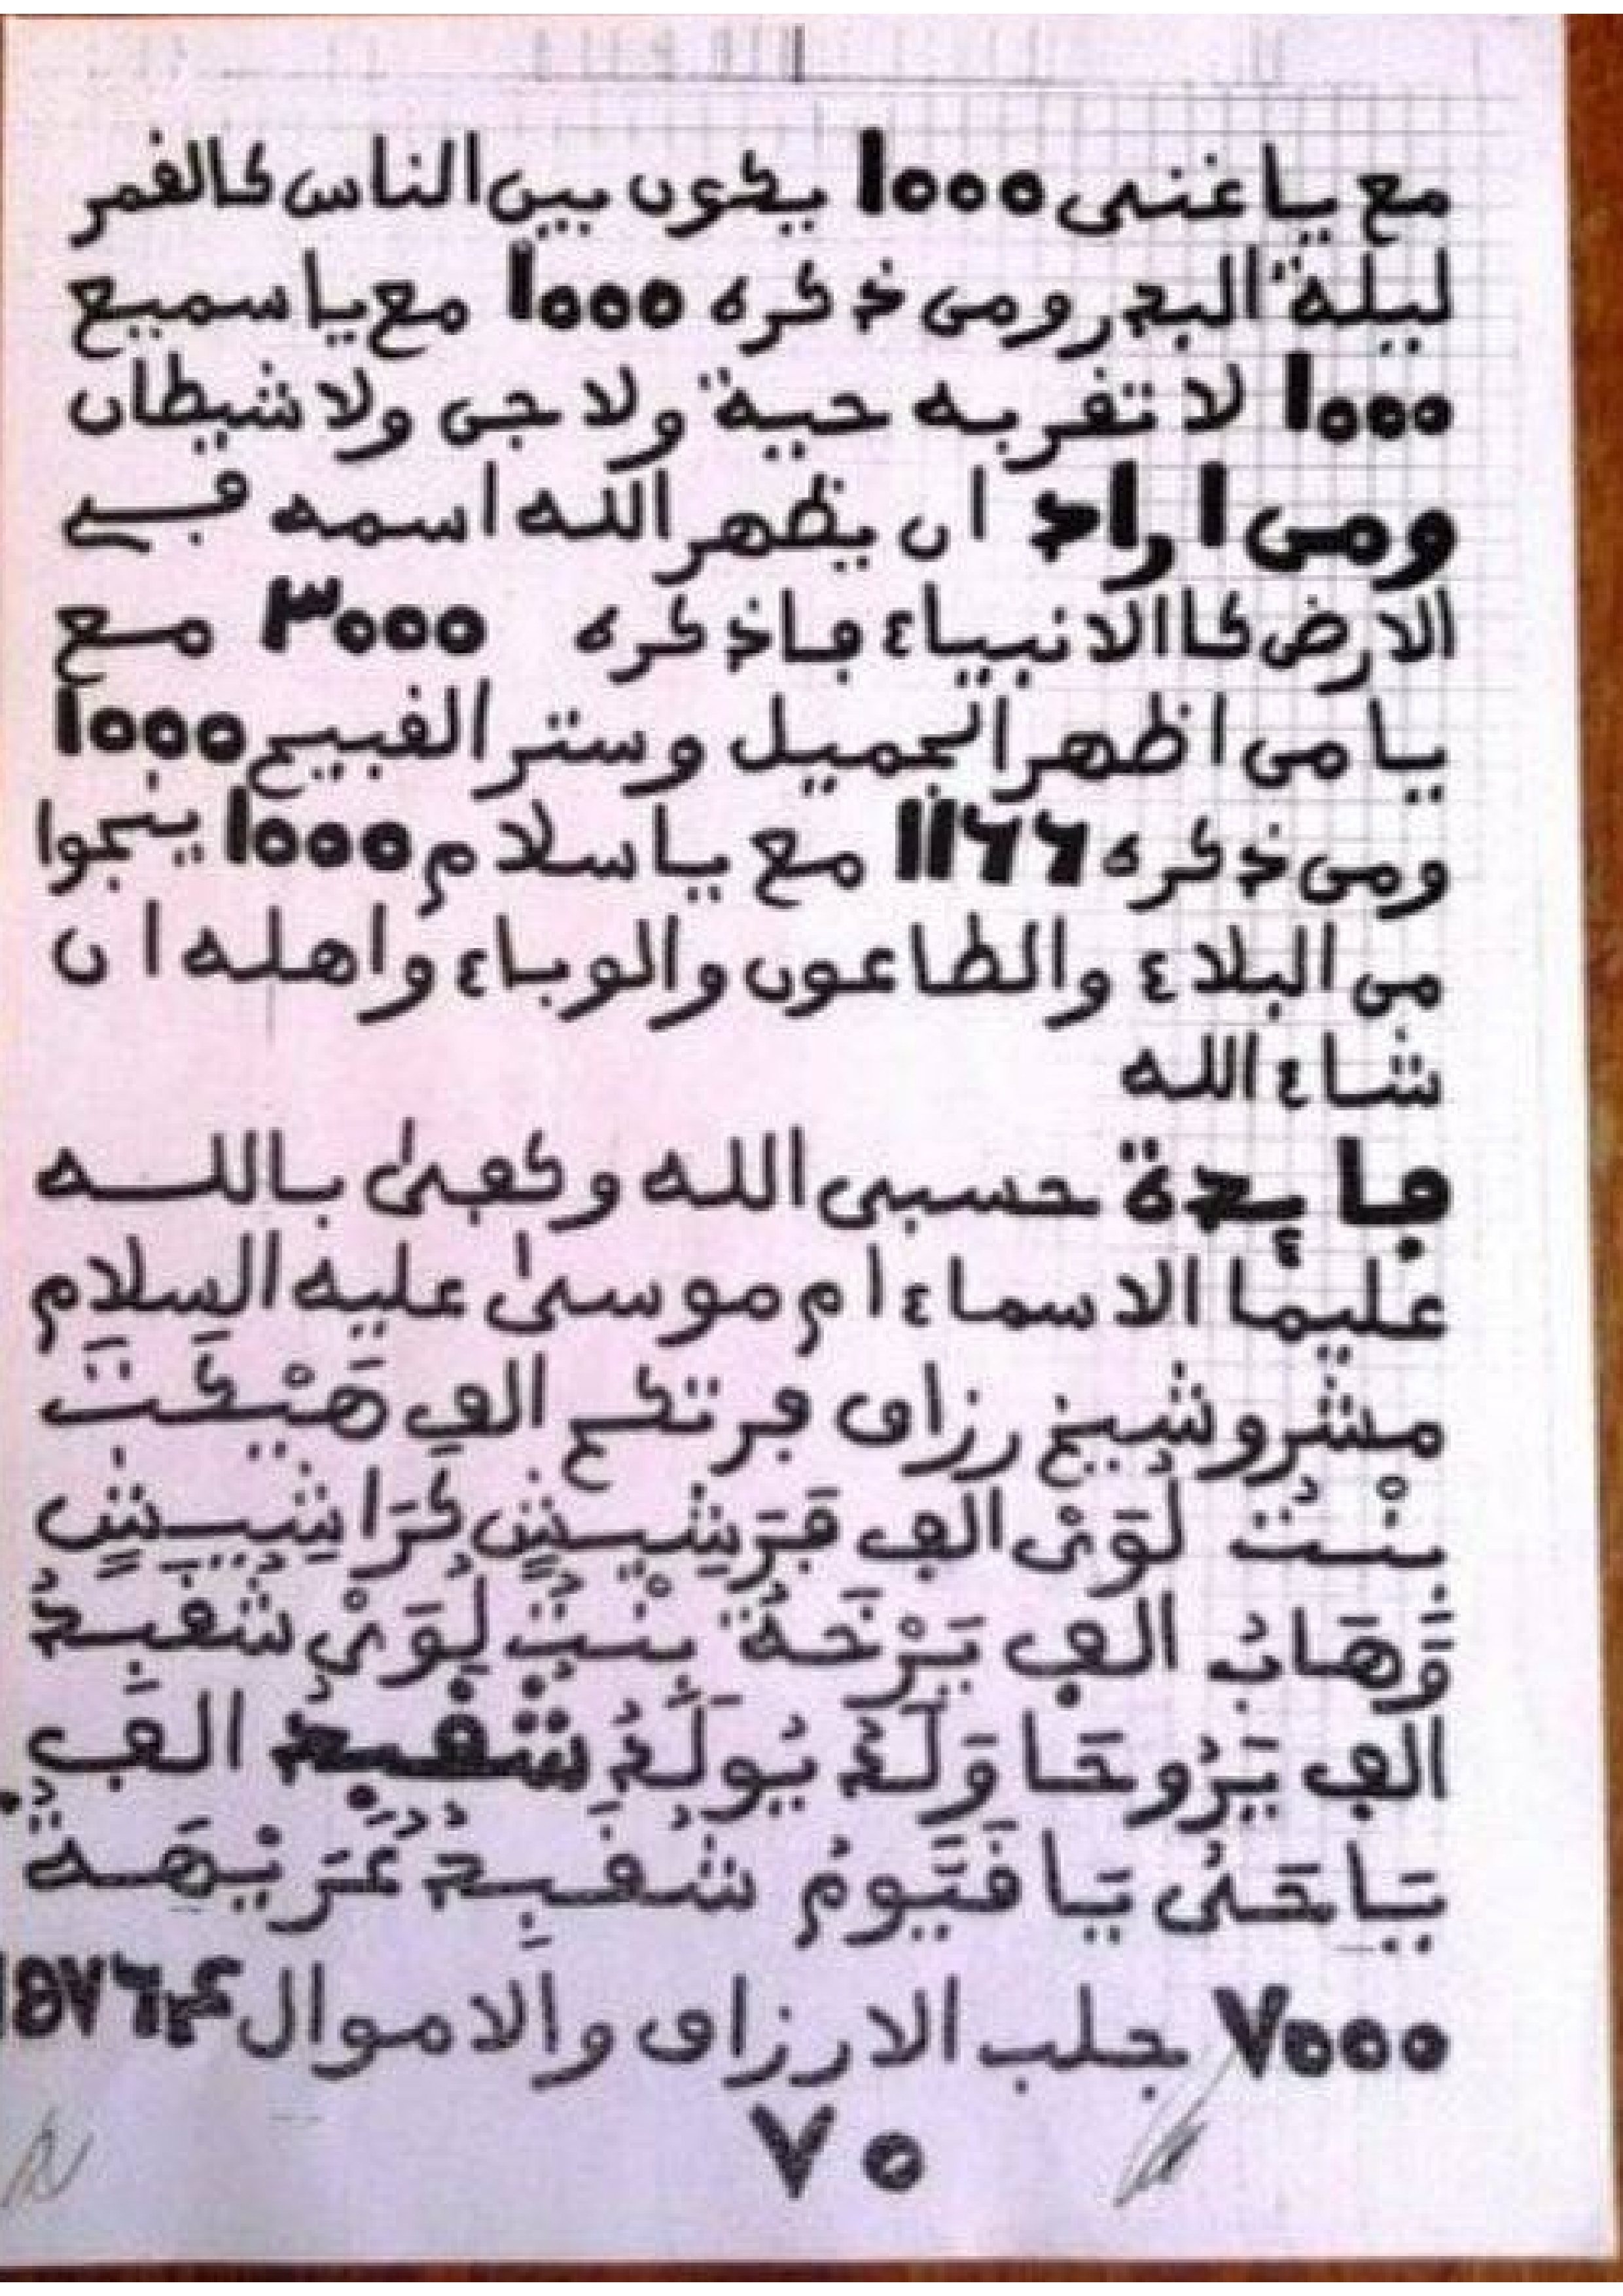 مع ياغنى ١٠٠٠ يكون بين الناس كالقمر
ليلة البدر ومن ذكره ١٠٠٠ مع ياسميع
١٠٠٠ لا تقربه حية ولا جن ولا شيطان
ومن اراد ان يظهر الله اسمه في
الارض كا الانبياء فاذكره ٣٠٠٠ مع
يامن اظهر الجميل وستر القبيح ١٠٠٠
ومن ذكره مع ياسلام ١٠٠٠ ينجوا
من البلاء والطاعون والوباء واهله ان
شاء الله
فايدة حسبى الله وكفىٰ بالله
عليما الاسماء ام موسىٰ عليه السلام
مشروشيخ رزاق فرتكع الف هَيْكَتَ
بنْتُ لُوَىْ الف فَرَشِيشٍ كَرَاشِيشٍ
وَهَابُ الف يَرْخَةُ بِنْتُ لُوَىْ شُفِيدُ
الف يَرُوخَا وَلَدُ يُولَدُ شُفِيدُ الف
يَاحَىُّ يَاقَيُّومُ شُفِيدُ
٧٠٠٠ جلب الارزاق والاموال
٧٠